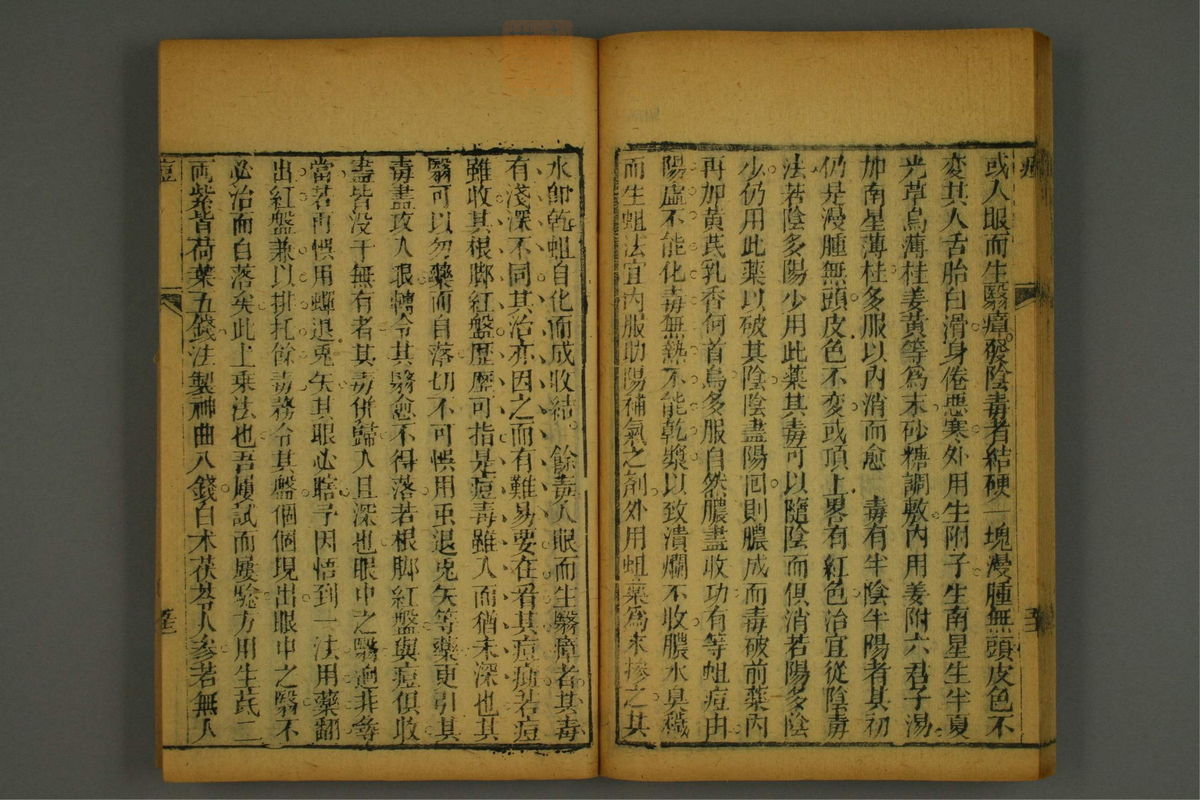 或入眼而生翳瘴礙陰毒者結硬一塊漫腫無頭皮色不
変其人舌胎白滑身倦悪寒外用生附子生南星生半夏
光草烏薄桂姜黄等爲末砂糖調敷內用姜附六君子湯
加南星薄桂多服以內消而愈 毒有半陰半陽者其初
仍是漫腫無頭皮色不変或頂上畧有紅色治宜從陰毒
法若陰多陽少用此薬其毒可以隨陰而俱消若陽多陰
少仍用此薬以破其陰陰盡陽囘則膿成而毒破前薬內
再加黃芪乳香何首烏多服自然膿盡收功有等蛆痘由
陽虛不能化毒無熱不能乾漿以致潰爛不收膿水臭穢
而生蛆法宜內服助陽補氣之劑外用蛆藥爲末摻之其
水卽乾蛆自化而成收結 餘毒入眼而生翳瘴者其毒
有淺深不同其治亦因之而有難易要在看其痘痂若痘
雖收其根脚紅盤歷歷可指是痘毒雖入而猶未深也其
翳可以勿藥而自落切不可悞用虫退兎矢等藥更引其
毒盡攻入眼轉令其翳愈不得落若根脚紅盤與痘俱收
盡皆没于無有者其毒併歸入且深也眼中之翳逈非等
當若再悞用蟬退兎矢其眼必瞎予因悟到一法用藥翻
出紅盤兼以排托餘毒務令其盤個個現出眼中之翳不
必治而自落矣此上乘法也吾屢試而屢驗方用生芪二
両紫背荷葉五錢法製神曲八錢白术茯苓人參若無人
痘